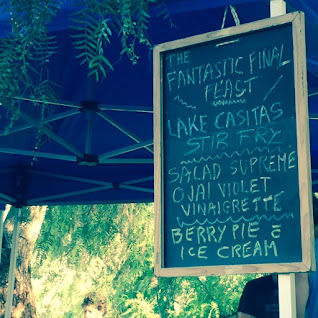 THE
FANTASTIC FINAL
FEAST
LAKE CASITAS
STIR FRY
SALAD SUPREME
OJAI VIOLET
VINAIGRETTE
BERRY PIE &
ICE CREAM